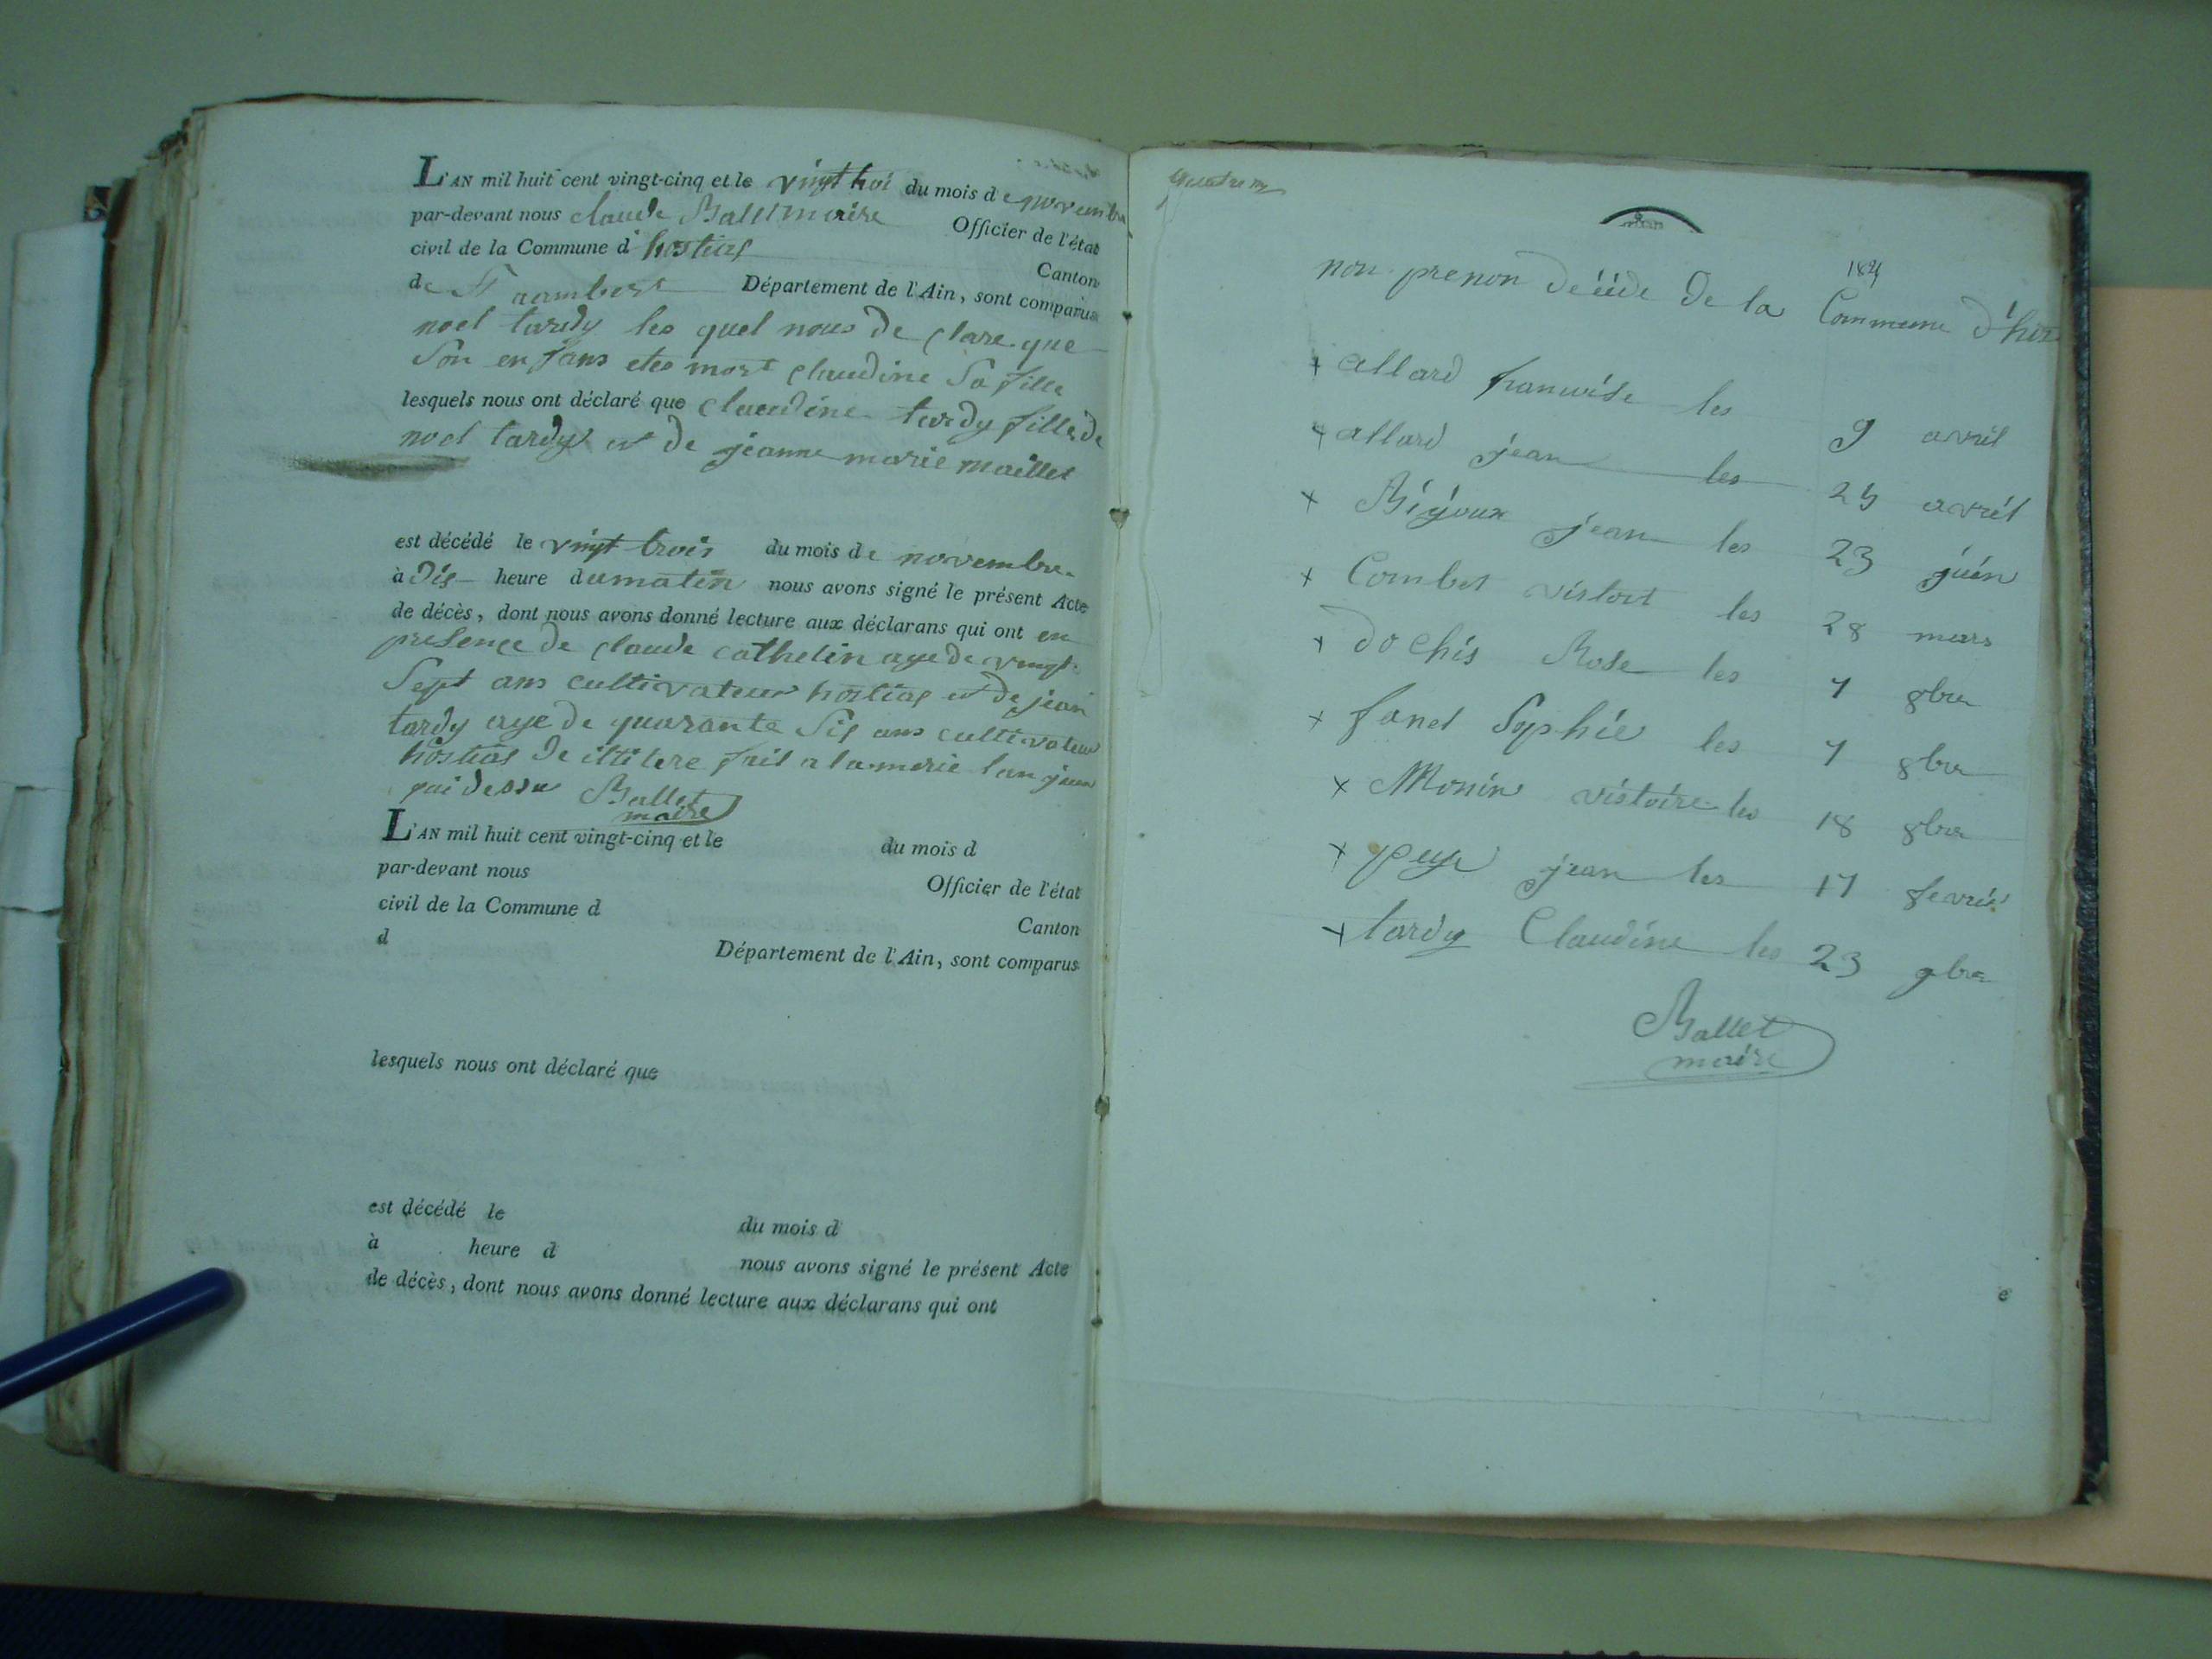 L'AN mil huit cent vingt-cinq et le vingt troi du mois de novembre
par-devant nous claude Ballet maire Officier de l'état
civil de la Commune d'hostias Canton
de St rambert Département de l'Ain, sont comparus
noel tardy les quel nous de clare que
Son enfans etes mort claudine Sa fille
lesquels nous ont déclaré que claudine tardy fille de
noel tardy et de jeanne marie maillet
est décédé le vingt trois du mois de novembre
à Dis heure dumatin nous avons signé le présent Acte
de décès, dont nous avons donné lecture aux déclarans qui ont en
presence de claude cathelin age de vingt
Sept ans cultivateur hostias et de jean
tardy age de quarante Sis ans cultivateur
hostias fait a la merie lan
qui dessu Ballet
maire
L'AN mil huit cent vingt-cinq et le du mois d
par-devant nous Officier de l'état
civil de la Commune d Canton
d Département de l'Ain, sont comparus
lesquels nous ont déclaré que
est décédé le du mois d
à heure d nous avons signé le présent Acte
de décès, dont nous avons donné lecture aux déclarans qui ont
non prenon de la Commune d'hos
+ allard les 9 avril
+ allard jean les avril
+ Bigoux jean les 23 juin
+ Combet vistort les 28 mars
+ dochis Rose les 7 8bre
+ fanet Sophie les 7 8bre
+ Monin vistoire les 18 8bre
+ jean les 17 fevrie
+ tardy Claudine les 23 9bre
Ballet
maire